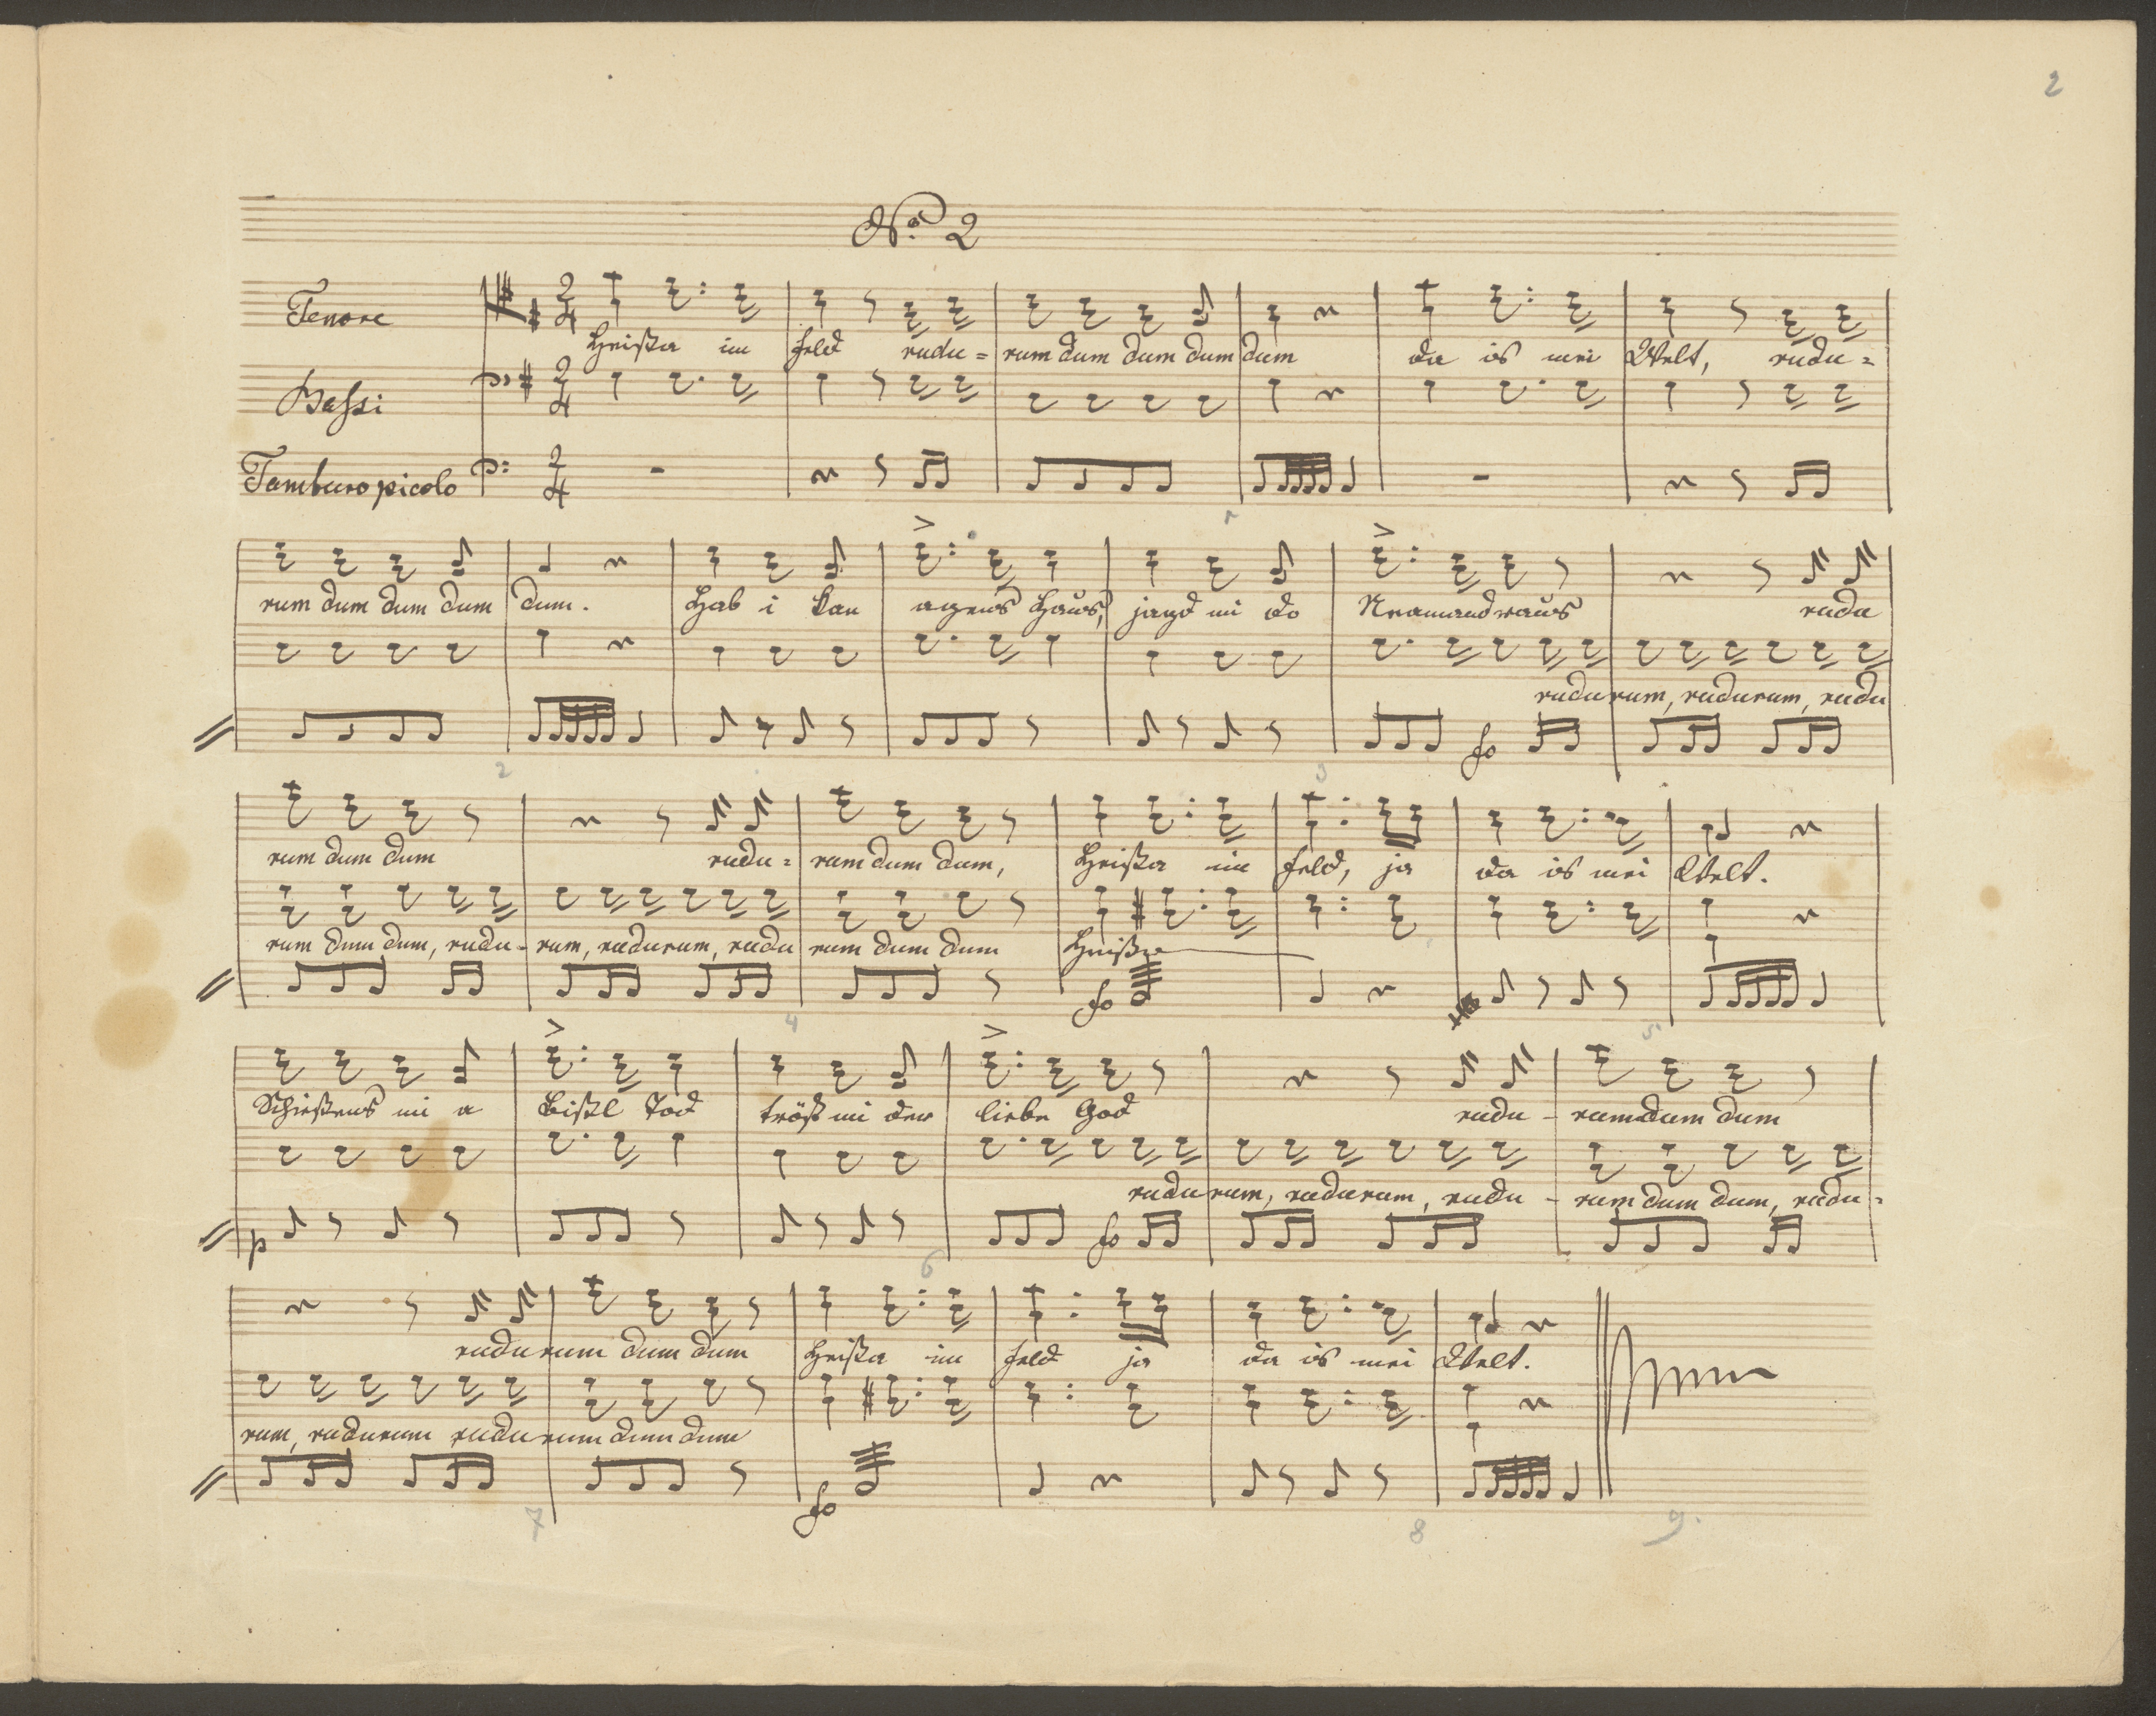 2
No. 2
Tenore
Heißa im Feld rudu= rum dum dum dum dum da is mei Welt, rudu=
Bassi
Tamburo picolo
1
rum dum dum dum dum. Hab i kan agens Haus, jagd mi do Neamand raus rudu
rudu rum, rudurum, rudu
fo
2 3
rum dum dum rudu= rum dum dum, Heißa im Feld, ja da is mei Welt.
rum dum dum, rudu- rum, rudurum, rudu rum dum dum Heißa
fo
4 5
Schießens mi a bißl Tod tröst mi der liebe God rudu - rum dum dum
rudu rum, rudurum, rudu - rum dum dum, rudu=
p fo
6
rudu rum dum dum Heißa im Feld ja da is mei Welt.
rum, rudurum rudu rum dum dum
fo
7 8 9.